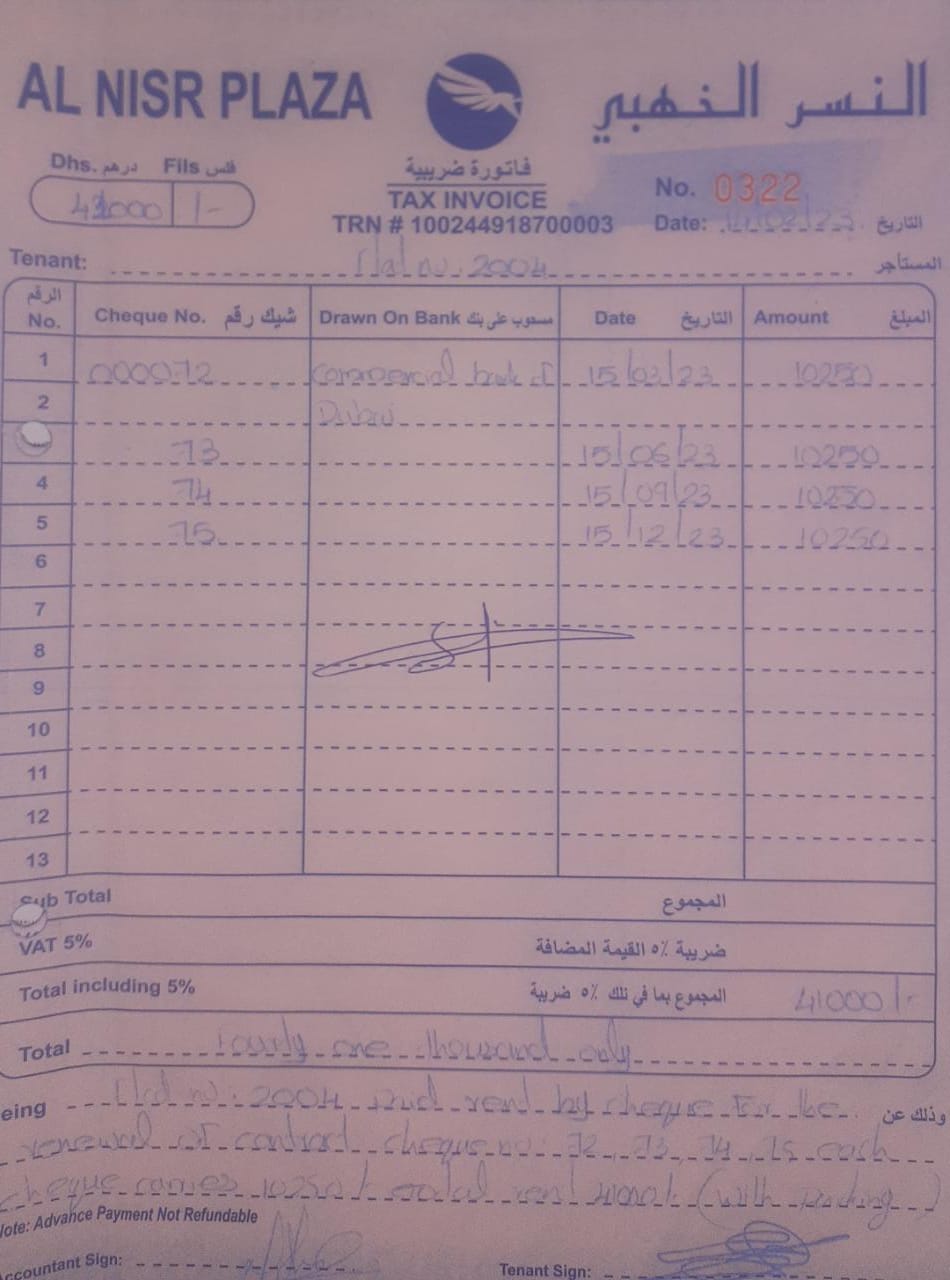 AL NISR PLAZA
النسر الذهبي
Dhs. درهم Fils فلس
41000 /-
فاتورة ضريبية
TAX INVOICE
TRN # 100244918700003
No. 0322
Date: 23 التاريخ
Tenant: Flat no. 2004 المستأجر
الرقم No. Cheque No. شيك رقم Drawn On Bank مسحوب على بنك Date التاريخ Amount المبلغ
1 000072 Commercial bank of 15/03/23 10250
2 Dubai
73 15/06/23 10250
4 74 15/09/23 10250
5 75 15/12/23 10250
6
7
8
9
10
11
12
13
Sub Total المجموع
VAT 5% ضريبة ٥٪ القيمة المضافة
Total including 5% المجموع بما في ذلك ٥٪ ضريبة 41000/-
Total fourty one thousand only
eing Flat no. 2004 Paid rent by cheque For the وذلك عن
renewal of contract cheque no: 72, 73, 74, 75 each
cheque carries 10250/- total rent 41000/- (with parking)
Note: Advance Payment Not Refundable
ccountant Sign: Tenant Sign: